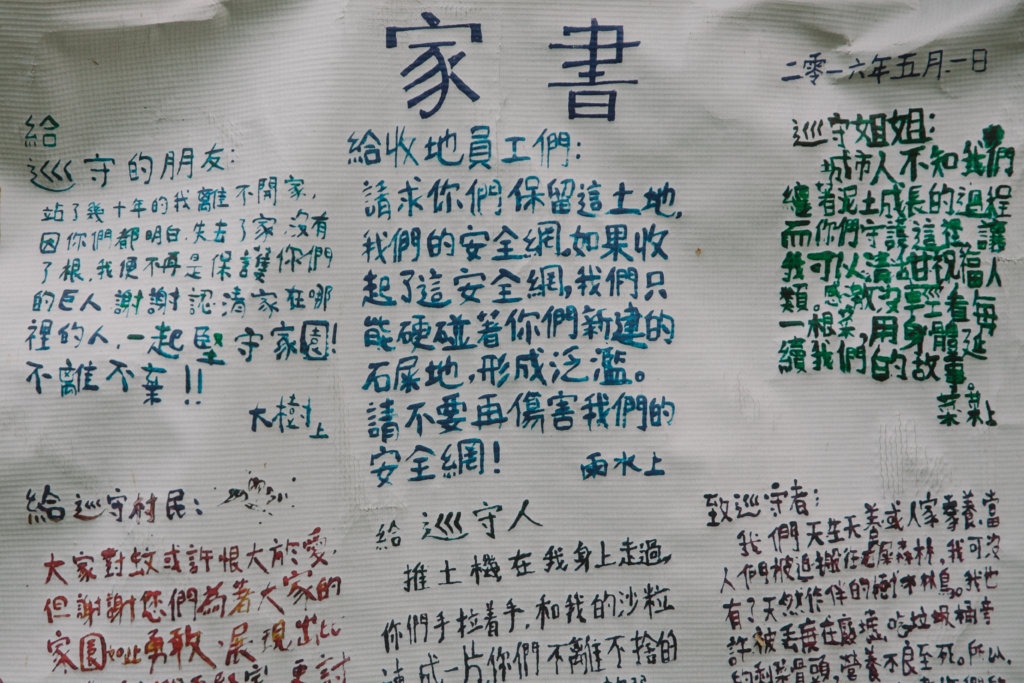 家書
二零一六年五月一日
給
巡守的朋友:
站了幾十年的我離不開家,
因你們都明白,失去了家,沒有
了根,我便不再是保護你們
的巨人謝謝認清家在哪
裡的人,一起堅守家園!
不離不棄!!
大樹上
給收地員工們:
請求你們保留這土地,
我們的安全網。如果收
起了這安全網,我們只
能硬碰著你們新建的
石屎地,形成泛濫。
請不要再傷害我們的
安全網!
雨水上
巡守姐姐:
城市人不知我們
纏著泥土成長的過程
而你們守護這裡,讓
我可以清甜祝福人
類。感激沒輕看每
一根菜,用身體延
續我們的故事。
菜上
給巡守村民:
大家對蚊或許恨大於愛,
但謝謝您們為著大家的
家園如此勇敢,展現出比
更堅 更討
給巡守人
推土機在我身上走過,
你們手拉着手,和我的沙粒
連成一片,你們不離不捨的
致巡守者:
我們天生天養或人家豢養,當
人們被迫搬往老屋森林,我可沒
有了天然作伴的樹林鳥。我也
許被丟度在廢墟,吃垃圾桶旁
的剩菜骨頭,營養不良至死。所以,